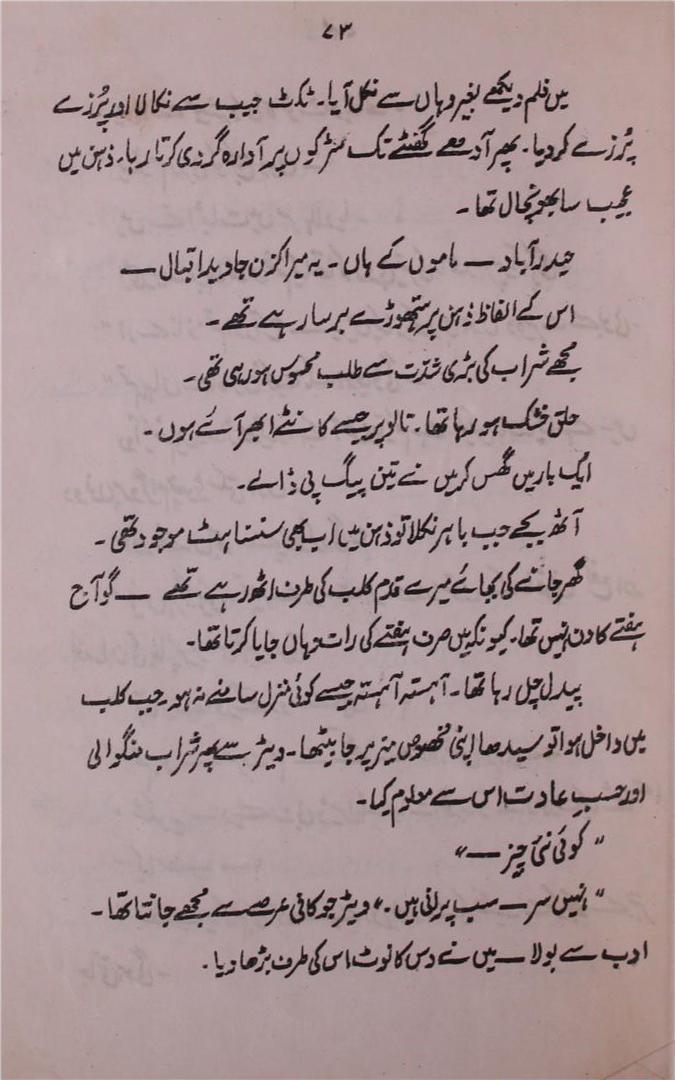 ۷۳
میں فلم دیکھے بغیر وہاں سے نکل آیا۔ ٹکٹ جیب سے نکالا اور پُرزے
پُرزے کر دیا۔ پھر آدھے گھنٹے تک سڑکوں پر آوارہ گردی کرتا رہا۔ ذہن میں
عجیب سا بھونچال تھا۔
حیدرآباد — ماموں کے ہاں۔ یہ میرا کزن جاوید اقبال —
اس کے الفاظ ذہن پر ہتھوڑے برسا رہے تھے۔
مجھے شراب کی بڑی شدّت سے طلب محسوس ہو رہی تھی۔
حلق خشک ہو رہا تھا۔ تالو پر جیسے کانٹے ابھر آئے ہوں۔
ایک بار میں گھس کر میں نے تین پیگ پی ڈالے۔
آٹھ بجے جب باہر نکلا تو ذہن میں اب بھی سنسناہٹ موجود تھی۔
گھر جانے کی بجائے میرے قدم کلب کی طرف اٹھ رہے تھے — گو آج
ہفتے کا دن نہیں تھا۔ کیونکہ میں صرف ہفتے کی رات وہاں جایا کرتا تھا۔
پیدل چل رہا تھا۔ آہستہ آہستہ جیسے کوئی منزل سامنے نہ ہو۔ جب کلب
میں داخل ہوا تو سیدھا اپنی مخصوص میز پر جا بیٹھا۔ ویٹر سے پھر شراب منگوالی
اور حسبِ عادت اس سے معلوم کیا۔
”کوئی نئی چیز —“
”نہیں سر — سب پرانی ہیں۔“ ویٹر جو کافی عرصے سے مجھے جانتا تھا۔
ادب سے بولا — میں نے دس کا نوٹ اس کی طرف بڑھا دیا۔